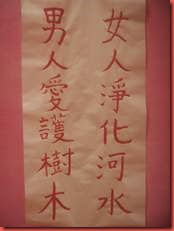 女人淨化河水
男人愛護樹木